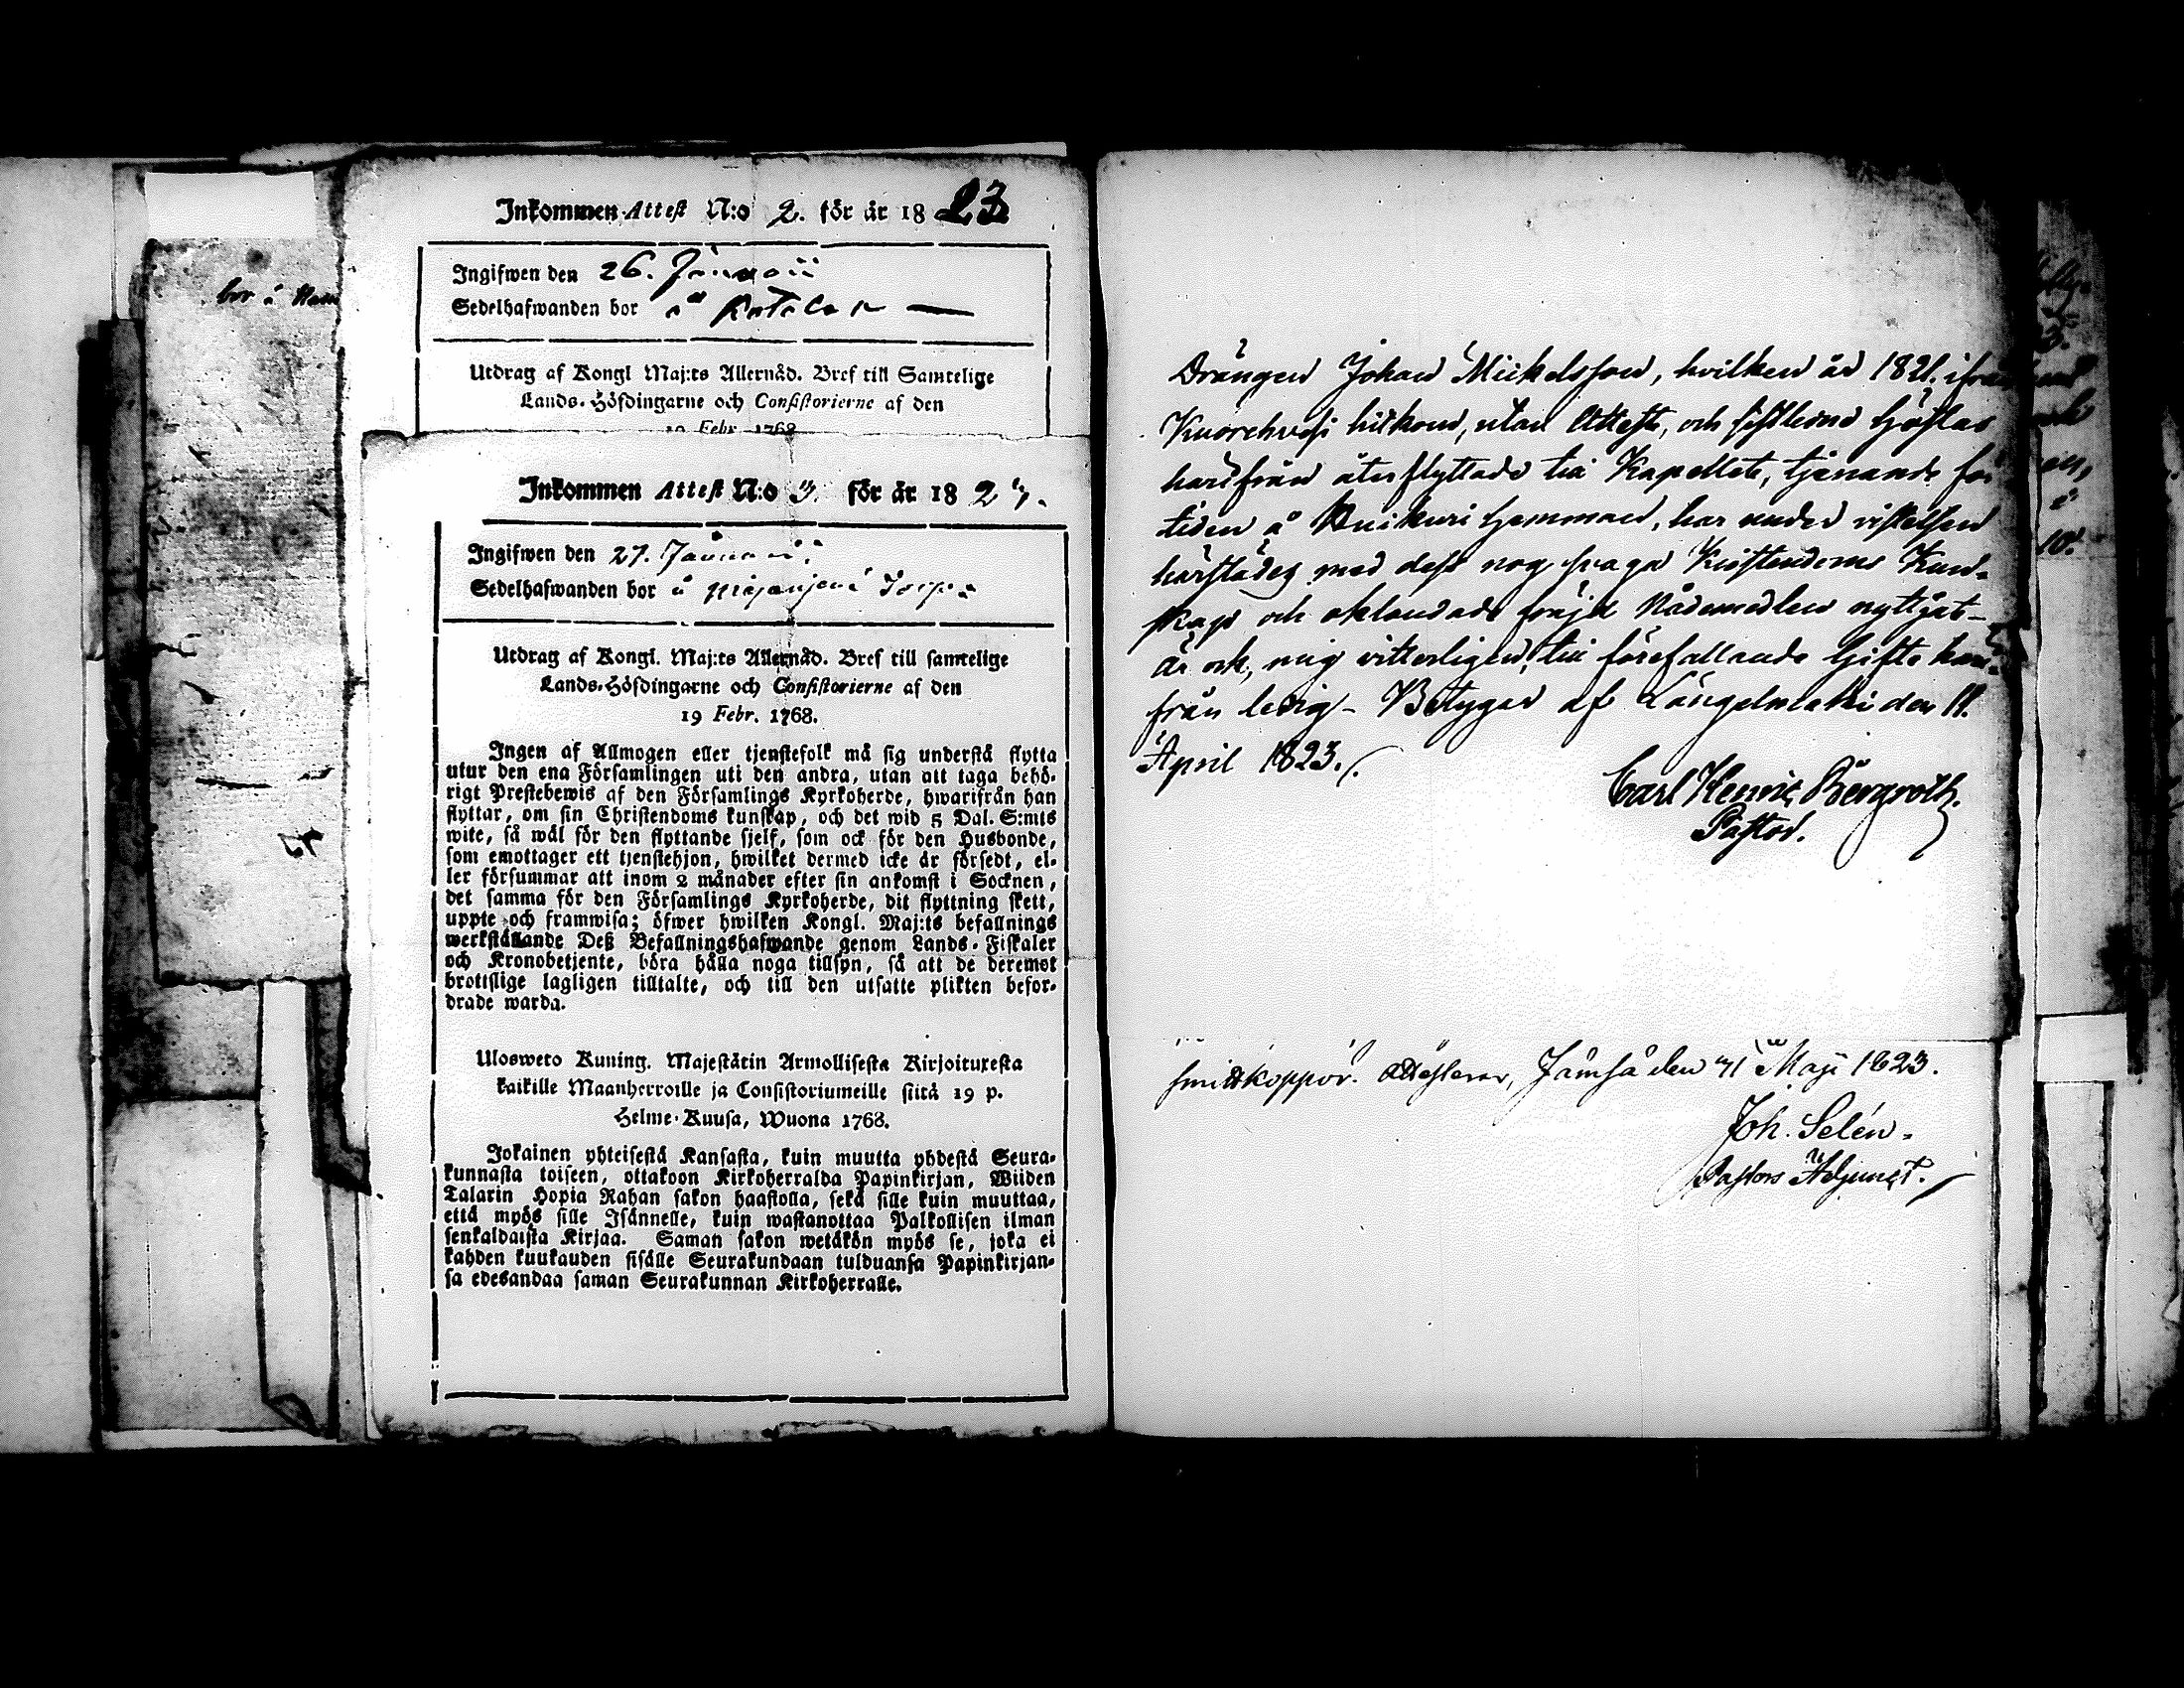 bor å
Inkommen Attest N:o 2. för år 18 23
Ingifwen den 26. Januarii
Sedelhafwanden bor å
Utdrag af Kongl Maj:ts Allernåd. Bref till Samtelige
Lands-Höfdingarne och Consistorierne af den
19 Febr. 1768
Inkommen Attest N:o 3. för år 18 23.
Ingifwen den 27. Januarii
Sedelhafwanden bor å
Utdrag af Kongl. Maj:ts Allernåd. Bref till samtelige
Lands-Höfdingarne och Consistorierne af den
19 Febr. 1768.
Ingen af Allmogen eller tjenstefolk må sig understå flytta
utur den ena Församlingen uti den andra, utan att taga behö-
rigt Prestebewis af den Församlings Kyrkoherde, hwarifrån han
flyttar, om sin Christendoms kunskap, och det wid 5 Dal. S:mts
wite, så wäl för den flyttande sjelf, som ock för den Husbonde,
som emottager ett tjenstehjon, hwilket dermed icke är försedt, el-
ler försummar att inom 2 månader efter sin ankomst i Socknen,
det samma för den Församlings Kyrkoherde, dit flyttning skett,
uppte och framwisa; öfwer hwilken Kongl. Maj:ts befallnings
werkställande Deß Befallningshafwande genom Lands-Fiskaler
och Kronobetjente, böra hålla noga tillsyn, så att de deremot
brottslige lagligen tilltalte, och till den utsatte plikten befor-
drade warda.
Ulosweto Kuning. Majestätin Armollisesta Kirjoituxesta
kaikille Maanherroille ja Consistoriumeille siitä 19 p.
Helme-Kuusa, Wuona 1768.
Jokainen yhteisestä Kansasta, kuin muutta yhdestä Seura-
kunnasta toiseen, ottakoon Kirkoherralda Papinkirjan, Wiiden
Talarin Hopia Rahan sakon haastolla, sekä sille kuin muuttaa,
että myös sille Isännelle, kuin wastanottaa Palkollisen ilman
senkaldaista Kirjaa. Saman sakon wetäkön myös se, joka ei
kahden kuukauden sisälle Seurakundaan tulduansa Papinkirjan-
sa edesandaa saman Seurakunnan Kirkoherralle.
Drängen Johan Mickelsson, hvilken år 1821. ifrån
Kuorehvesi hitkom, utan Attest, och sistledne Höstas
härifrån återflyttade till Kapellet, tjenande för
tiden å hemman, har under vistelsen
härstädes med dess nog svaga Kristendoms Kund-
skap och oklandrade fräjd Nådemedlen nyttjat-
är ock, mig vitterligen, till förefallande Gifte här-
från ledig - Betygar af Längelmäki den 11.
April 1823.
Carl Henric Bergroth.
Pastor.
smittkoppor. Attesterar, Jämsä den 31 Maji 1823.
Joh. Selén.
Pastors Adjunct.